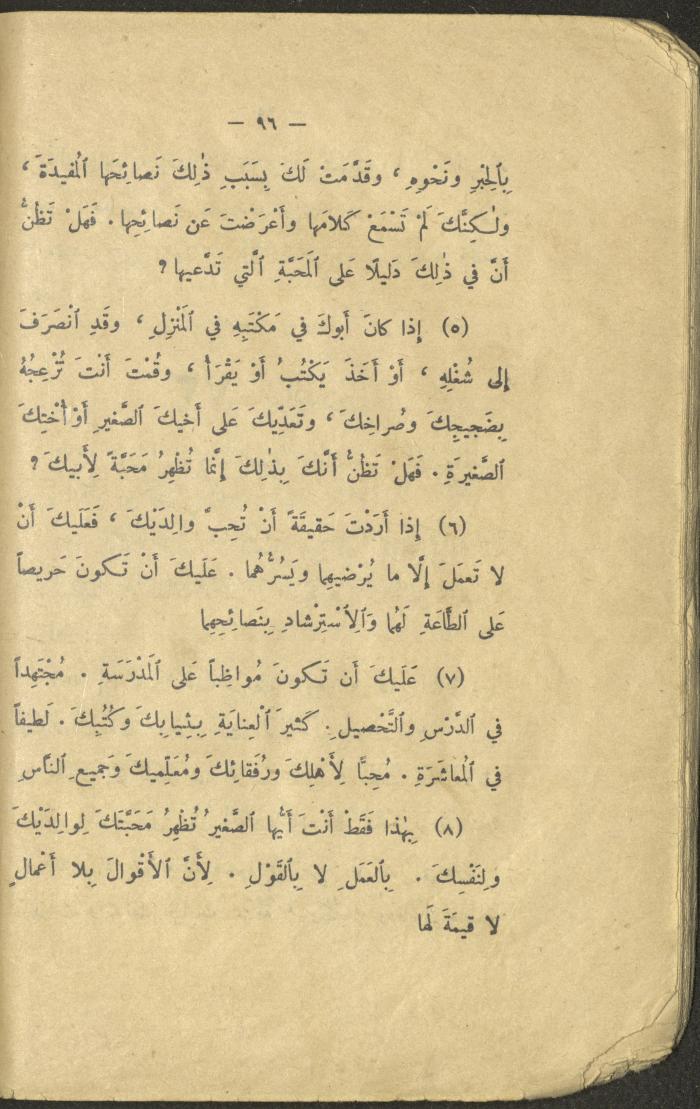 — ٩٦ —
بِٱلْحِبْرِ ونَحْوِهِ ، وقَدَّمَتْ لَكَ بِسَبَبِ ذٰلِكَ نَصائِحَها ٱلْمُفيدَةَ ،
ولٰكِنَّكَ لَمْ تَسْمَعْ كَلامَها وأَعْرَضْتَ عَن نَصائِحِها . فَهَلْ تَظُنُّ
أَنَّ في ذٰلِكَ دَليلًا عَلى ٱلْمَحَبَّةِ ٱلَّتي تَدَّعيها ؟
(٥) إِذا كانَ أَبوكَ في مَكْتَبِهِ في ٱلْمَنْزِلِ ، وقَدِ ٱنْصَرَفَ
إِلى شُغْلِهِ ، أَوْ أَخَذَ يَكْتُبُ أَوْ يَقْرَأُ ، وقُمْتَ أَنْتَ تُزْعِجُهُ
بِضَجيجِكَ وصُراخِكَ ، وتَعَدِّيكَ عَلى أَخيكَ ٱلصَّغيرِ أَوْ أُخْتِكَ
ٱلصَّغيرَةِ . فَهَلْ تَظُنُّ أَنَّكَ بِذٰلِكَ إِنَّما تُظْهِرُ مَحَبَّةً لِأَبيكَ ؟
(٦) إِذا أَرَدْتَ حَقيقَةً أَنْ تُحِبَّ والِدَيْكَ ، فَعَلَيكَ أَنْ
لا تَعمَلَ إِلَّا ما يُرْضيهِما ويَسُرُّهُما . عَلَيكَ أَنْ تَكونَ حَريصاً
عَلى ٱلطَّاعَةِ لَهُما وَٱلِٱسْتِرْشادِ بِنَصائِحِهِما
(٧) عَلَيكَ أَن تَكونَ مُواظِباً عَلى ٱلْمَدْرَسَةِ . مُجْتَهِداً
في ٱلدَّرْسِ وٱلتَّحْصيلِ . كَثيرَ ٱلْعِنايَةِ بِثِيابِكَ وكُتُبِكَ . لَطيفاً
في ٱلْمُعاشَرَةِ . مُحِبًّا لِأَهْلِكَ ورُفَقائِكَ ومُعَلِّميكَ وجَميعِ ٱلنَّاسِ
(٨) بِهٰذا فَقَطْ أَنْتَ أَيُّها ٱلصَّغيرُ تُظْهِرُ مَحَبَّتَكَ لِوالِدَيْكَ
ولِنَفْسِكَ . بِٱلْعَمَلِ لا بِٱلْقَوْلِ . لِأَنَّ ٱلْأَقْوالَ بِلا أَعْمالٍ
لا قيمَةَ لَها